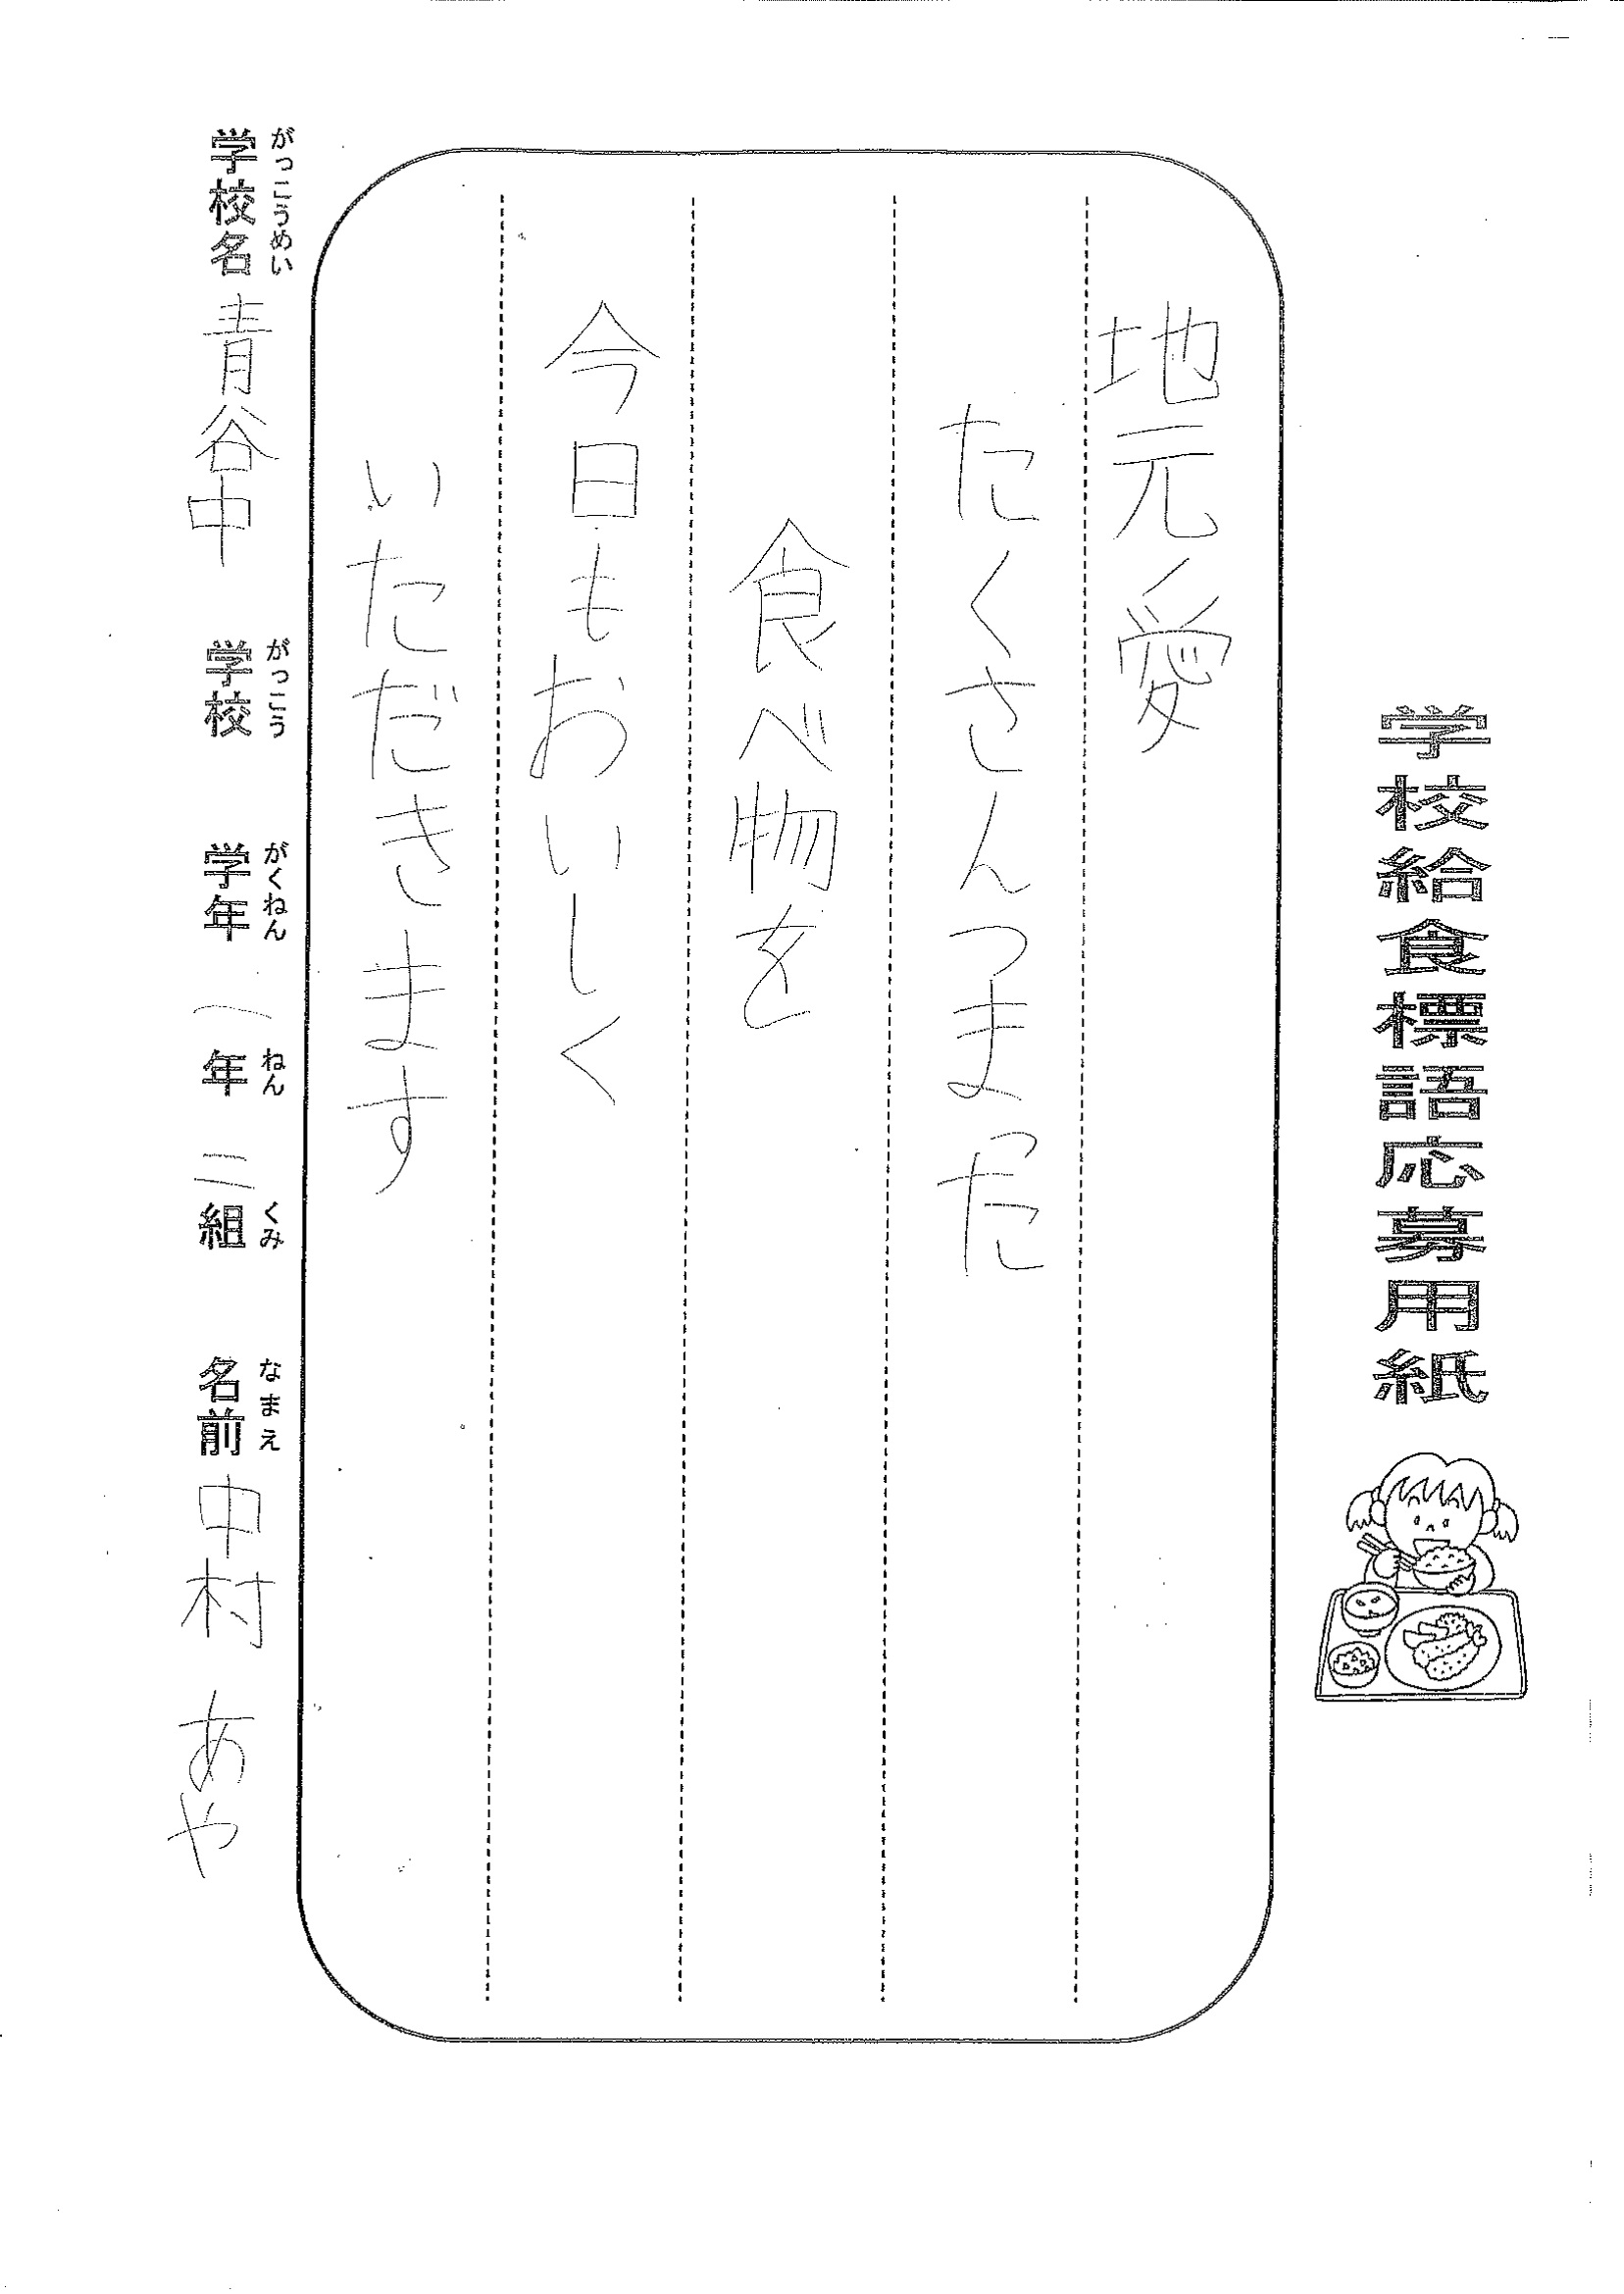 学校給食標語応募用紙
地元愛
たくさんつまった
食べ物を
今日もおいしく
いただきます
がっこうめい がっこう がくねん ねん くみ なまえ
学校名 青谷中 学校 学年 一年 二組 名前 中村 あや